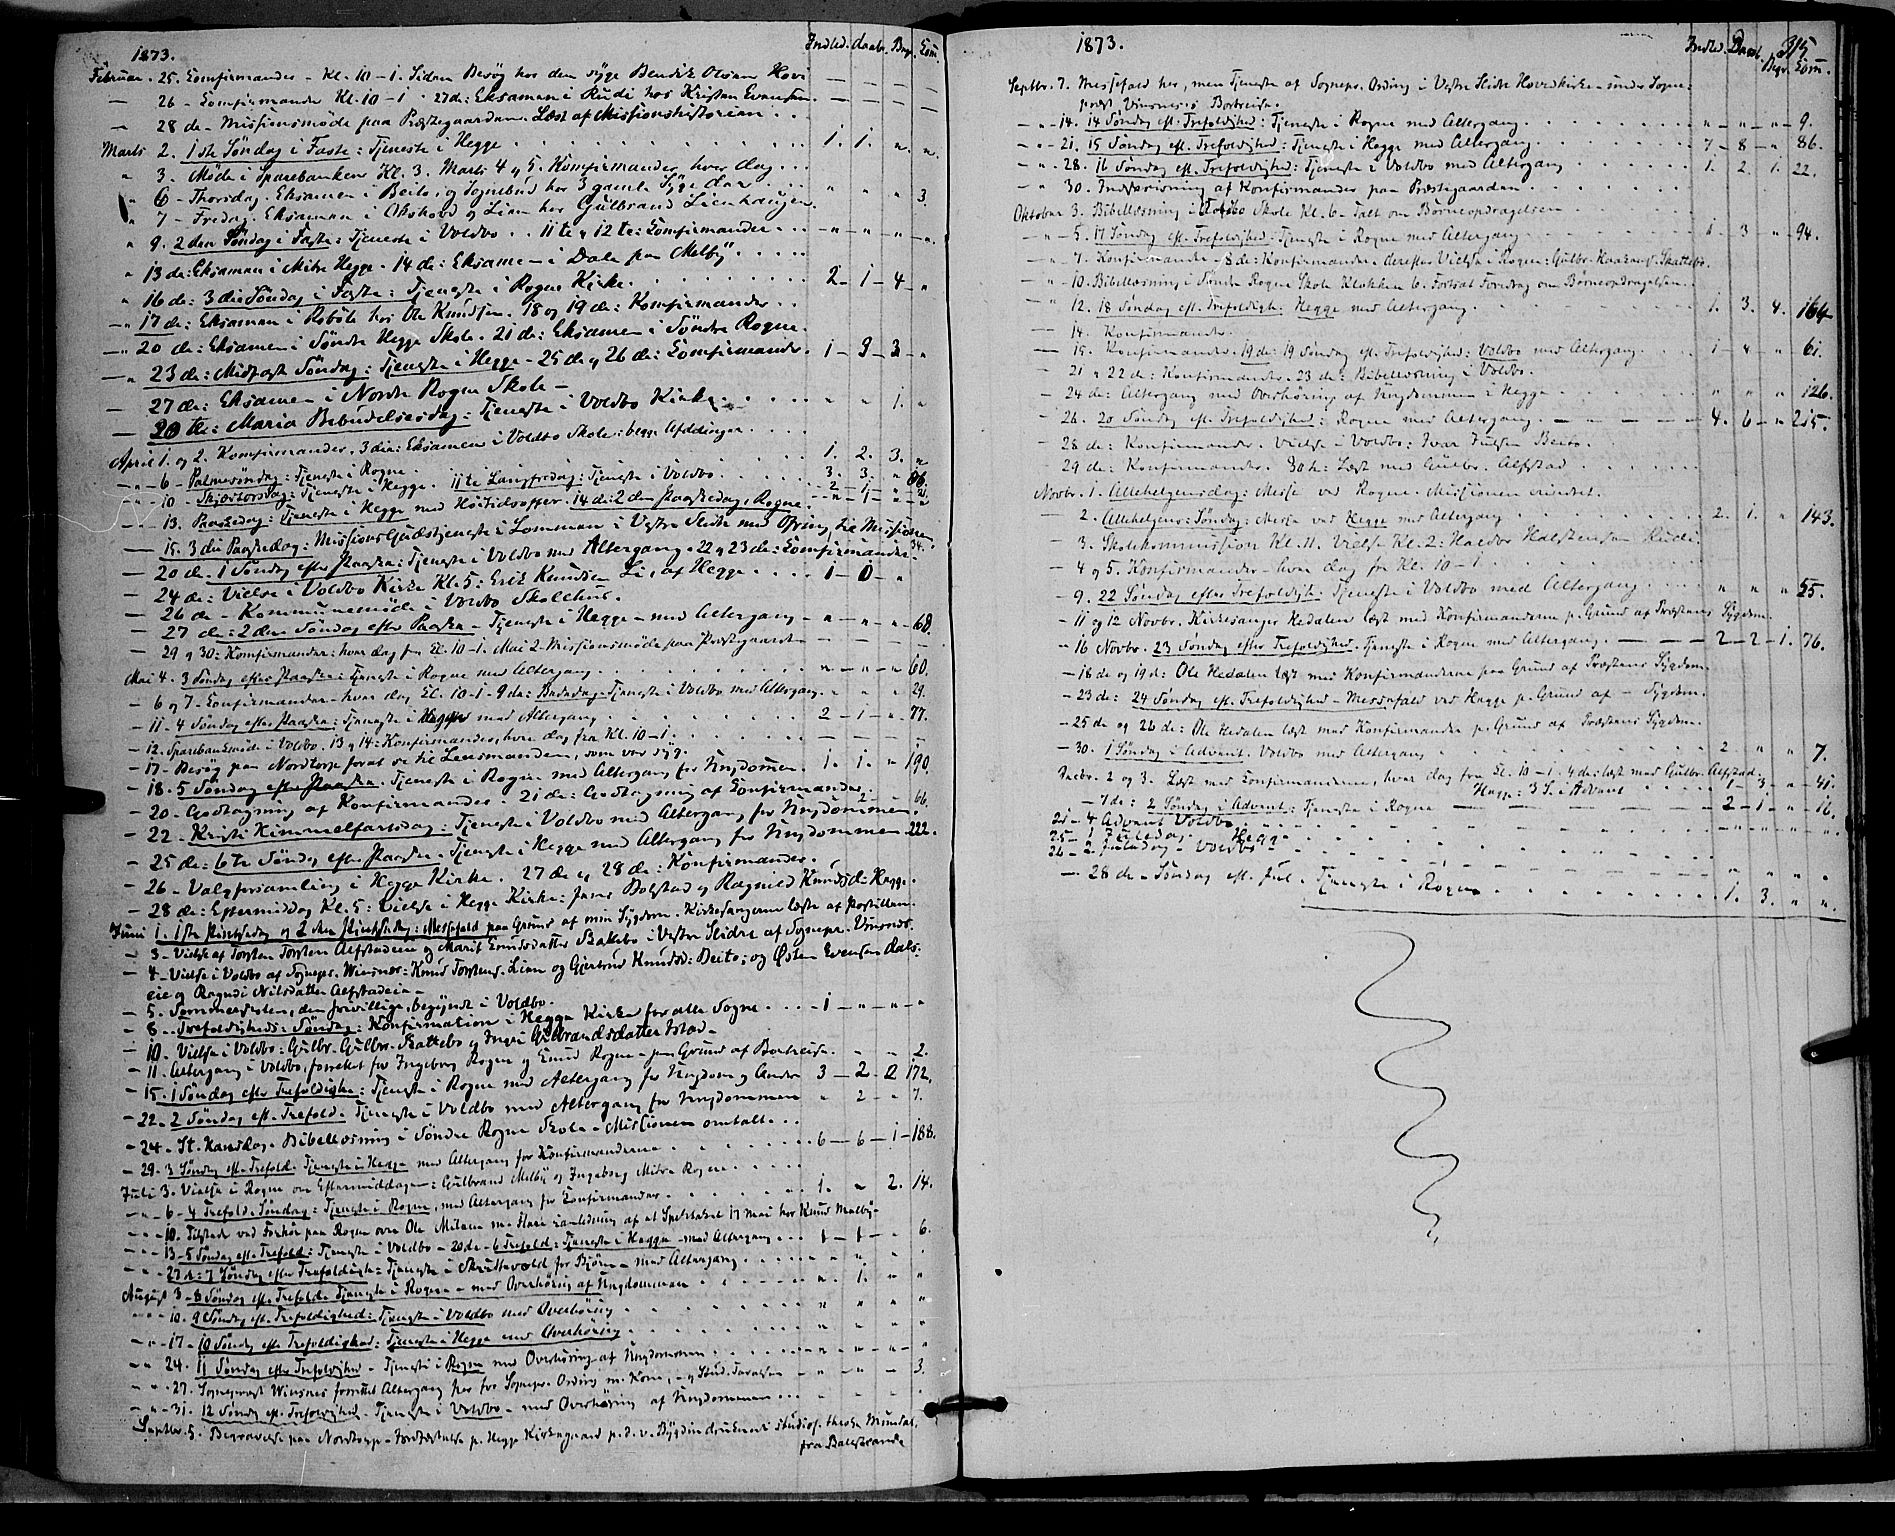 1873.
Indled. Daab. Begr. Com.
Februar. 25. Comfirmander - Kl. 10-1. Siden Besøg hos den syge Bendik Olsen Hovi
— 26 - Comfirmander Kl. 10-1 - 27de: Eksamen i Rudi hos Kristen Evensen.
— 28 de - Missionsmøde paa Præstegaarden. Læst af Missionshistorien . .
Marts 2. 1ste Søndag i Faste: Tjeneste i Hegge . . . 1. 1. " "
" 3. Møde i Sparebanken Kl. 3. Marts 4 og 5. Konfirmander hver dag . . .
" 6 - Thorsdag. Eksamen i Beito, og Sognebud hos 3 gamle Syge der . . . " " " 3.
" 7 - Fredag. Eksamen i Okshovd og Lien hos Gulbrand Lienhaugen.
" 9. 2den Søndag i Faste: Tjeneste i Voldbo . . 11te og 12te: Comfirmander . . . " " " "
" 13 de: Eksamen i Mitre Hegge - 14 de: Eksamen i Dale paa Melby . . . .
" 16 de: 3die Søndag i Faste: Tjeneste i Rogne Kirke. . . . 2 - 1 - 4 - "
— " 17 de: Eksamen i Robøle hos Ole Knudsen. 18 og 19 de: Konfirmander . .
— " 20 de: Eksamen i Søndre Hegge Skole. 21 de: Eksamen i Søndre Rogne.
— " 23 de: Midfaste Søndag: Tjeneste i Hegge - 25 de og 26 de: Comfirmander. 1 - 9 - 3 - "
— 27 de: Eksamen i Nordre Rogne Skole -
— Maria Bebudelsesdag: Tjeneste i Voldbo Kirke. . . . " " 1. "
April 1. og 2. Komfirmander, 3 die: Eksamen i Voldbo Skole: begge Afdelinger . . . .
— " - 6 - Palmesøndag: Tjeneste i Rogne. . . . 1. 2. 3. "
— " - 10 - Skjærtorsdag: Tjeneste i Hegge. 11te Langfredag: Tjeneste i Voldbo. . . 3. 3. "
— " - 13. Paaskedag: Tjeneste i Hegge med Høitidsoffer. 14 de: 2den Paaskedag, Rogne
— 15. 3die Paaskedag: Missions Gudstjeneste i Lommen i Vestre Slidre med Ofring til Missionen.
— 20 de. 1 Søndag efter Paaske: Tjeneste i Voldbo med Altergang. 22 og 23 de: Comfirmander. 34.
— 24 de: Vielse i Voldbo Kirke Kl. 5: Erik Knudsen Li, af Hegge . . . . 1 - 0 - "
— 26 de - Kommunemøde i Voldbo Skolehus.
— 27 de: 2den Søndag efter Paaske - Tjeneste i Hegge - med Altergang - " - " - " - 68.
— 29 og 30: Komfirmander: hver dag fra Kl. 10-1. Mai 2. Missionsmøde paa Præstegaarden
Mai 4. 3 Søndag efter Paaske: Tjeneste i Rogne med Altergang . . . " - " - " 60.
— 6 og 7 - Comfirmander - hver dag Kl. 10-1 - 9 de: Bededag - Tjeneste i Voldbo med Altergang. " " " 29.
— 11 - 4 Søndag efter Paaske: Tjeneste i Hegge med Altergang . . . 2 - 1 - " - 77.
— 12. Sparebankmøde i Voldbo. 13 og 14: Konfirmander, hver dag fra Kl. 10-1. . .
— 17 - Besøg paa Nordtorp forat se til Lensmanden, som var syg.
— 18. 5 Søndag efter Paaske. Tjeneste i Rogne med Altergang for Ungdommen. 1. 1. " 190.
— 20 - Modtagning af Konfirmander. 21 de: Modtagning af Comfirmander.
— 22 - Kristi Himmelfartsdag: Tjeneste i Voldbo med Altergang for Ungdommen. 66.
— 25 de: 6te Søndag efter Paaske. Tjeneste i Hegge med Altergang for Ungdommen 222.
— 26 - Valgforsamling i Hegge Kirke. 27 de og 28 de: Konfirmander.
— 28 de: Eftermiddag Kl. 5: Vielse i Hegge Kirke: Jens Bolstad og Ragnild Knudsd: Hegge.
Juni 1. 1ste Pintsedag og 2den Pintsedag: Messefald paa Grund af min Sygdom. Kirkesangeren læste af Postillen.
— 3 - Vielse af Torsten Torstensen Alfstadeie og Marit Knudsdatter Bakkebo i Vestre Slidre af Sognepr. Vinsnes.
— 4 - Vielse i Voldbo af Sognepr. Winsnes: Knud Torstens. Lien og Gjertrud Knudsd: Beito; og Østen Evensen Dals-
eie og Ragndi Nilsdatter Alfstadeie -
— 5. Sommerskolen, den frivillige, begyndt i Voldbo.
— 8 - Trefoldigheds: Søndag: Konfirmation i Hegge Kirke for alle Sogne . . . . 1 - " - " - "
— 10. Vielse i Voldbo: Gulbr. Gulbr. Skattebo og Inger Gulbrandsdatter Ødstad -
— 11. Altergang i Voldbo, forrettet for Ingeborg Rogne og Knud Rogne - paa Grund af Bortreise. " " " 2.
— 15. 1 Søndag efter Trefoldighed: Tjeneste i Rogne med Altergang for Ungdom og Andre 3 - 2 - 172.
— 22. 2 Søndag eft. Trefold. Tjeneste i Voldbo med Altergang for Ungdommen " 2 - " 7.
— 24 - St. Hansdag. Bibellæsning i Søndre Rogne Skole - Missionen omtalt. . .
— 29. 3 Søndag eft. Trefold. Tjeneste i Hegge med Altergang for Konfirmanderne . . . . 6 - 6 - 1 - 188.
Juli 3. Vielse i Rogne om Eftermiddagen: Gulbrand Melby og Ingeborg Mitre Rogne . . . .
— " - 6 - 4 Trefold. Søndag: Tjeneste i Rogne, med Altergang for Comfirmander . . . 1. " 2. 14.
— " - 10. Tilstede ved Forhør paa Rogne over Ole Milsen m. flere i anledning af et Spektakel 17 Mai hos Knud Melby.
— " - 13 - 5 Søndag efter Trefold: Tjeneste i Voldbo - 20 de - 6 Trefold: Tjeneste i Hegge - med Altergang . . . 1 - 1 - " 6.
— " - 27 de: 7 Søndag efter Trefoldigh: Tjeneste i Skrutvold for Bjørn - med Altergang . . . . " " "
August 3 - 8 Søndag eft. Trefold. Tjeneste i Rogne - med Overhøring af Ungdommen . . . . " 1. " "
— " - 10. 9 Søndag eft. Trefoldighed: Tjeneste i Voldbo med Overhøring . . . " " " "
— " - 17 - 10 Søndag efter Trefoldighed: Tjeneste i Hegge med Overhøring . . . " " " "
— " 24. 11 Søndag efter Trefoldighed - Tjeneste i Rogne med Overhøring af Ungdommen . . . . . " - " - " - "
— " - 27. Sogneprest Winsnes forrettet Altergang her for Sognepr. Ording m. Kone, - og Stud. . . . " - " - 3.
— " - 31. 12 Søndag eft. Trefoldighed - Tjeneste i Voldbo - med Overhøring af Ungdommen . . .
Septbr. 5. Begravelse paa Nordtorp - Jordfæstelse p. Hegge Kirkegaard p. d. v. Bygdin druknede studios. theolo. Mundal,
fra Balestrand.
1873.
315
Indled. Daab. Begr. Com.
Septbr. 7. Messefald her, men Tjeneste af Sognepr. Ording i Vestre Slidre Hovedkirke - under Sogne-
prest Vinsnes's Bortreise.
— " - 14. 14 Søndag eft. Trefoldighed: Tjeneste i Rogne med Altergang . . . " - " - " - 9.
— " - 21. 15 Søndag eft. Trefoldighed: Tjeneste i Hegge med Altergang . . . 7 - 8 - " - 86.
— " - 28. 16 Søndag eft. Trefoldighed: Tjeneste i Voldbo med Altergang . . . 1. 2. 1. 22.
— " 30. Indskrivning af Konfirmander paa Præstegaarden . . .
Oktober 3. Bibellæsning i Voldbo Skole Kl. 6 - Talt om Børneopdragelsen . . .
— " - 5. 17 Søndag eft. Trefoldighed: Tjeneste i Rogne med Altergang . . . 1 - 3 - " - 94.
— " - 7. Konfirmander - 8 de: Konfirmander i derefter Vielse i Rogne: Gulbr. Haakens. Skattebo.
— " 10. Bibellæsning i Søndre Rogne Skole Klokken 6. Fortsat Foredrag om Børneopdragelsen . . .
— " 12. 18 Søndag eft. Trefoldigh: Hegge med Altergang . . . 1. 3. 4. 164
— 14. Konfirmander.
— 15. Konfirmander. 19 de: 19 Søndag eft. Trefoldighed: Voldbo med Altergang . . . 1 - 4 - " 61.
— 21 og 22 de: Konfirmander. 23 de: Bibellæsning i Voldbo.
— 24 de: Altergang med Overhøring af Ungdommen i Hegge . . . " " " 126.
— 26. 20 Søndag eft. Trefoldighed: Rogne med Altergang. — — — 4. 6 - " 215.
— 28 de: Konfirmander. Vielse i Voldbo: Ivar Juulsen Beito.
— 29 de: Konfirmander. 30te: Læst med Gulbr. Alfstad . . .
Novbr. 1. Allehelgensdag: Messe ved Rogne. Missionen erindret.
— 2. Allehelgens: Søndag: Messe ved Hegge med Altergang . . . 2. 1. " 143.
— 3. Skolekommission Kl. 11. Vielse Kl. 2: Haldor Halstensen Rudi.
— 4 og 5. Konfirmander - hver dag fra Kl. 10-1 . . .
— 9. 22 Søndag efter Trefoldigh: Tjeneste i Voldbo med Altergang . . . " " " 55.
— 11 og 12 Novbr. Kirkesanger Hedalen læst med Konfirmanderne p. Grund af Præstens Sygdom.
" 16 Novbr. 23 Søndag efter Trefoldighed. Tjeneste i Rogne med Altergang. — — — 2 - 2 - 1. 76.
— 18 de og 19 de: Ole Hedalen læst med Konfirmanderne paa Grund af Præstens Sygdom.
— 23 de: 24 Søndag eft. Trefoldighed - Messefald ved Hegge p. Grund af - Sygdom.
— 25 de og 26 de: Ole Hedalen læst med Konfirmander p. Grund af Præstens Sygdom.
— 30. 1 Søndag i Advent. Voldbo med Altergang . . . 2 " " 7.
Decbr. 2 og 3. Læst med Confirmanderne, hver dag fra Kl. 10-1. 4 de: læst med Gulbr. Alfstad.
Hegge: 3 S. i Advent . . . 1 - 3 - " - 41.
— 7 de: 2 Søndag i Advent: Tjeneste i Rogne — — — 2 - 1 - " - 16.
21 - 4 Advent Voldbo . . .
25 - 1 Juledag - Hegge . . .
26 - 2 Juledag - Voldbo . . .
— 28 de - Søndag eft. Jul. Tjeneste i Rogne . . . 1. 3. " "